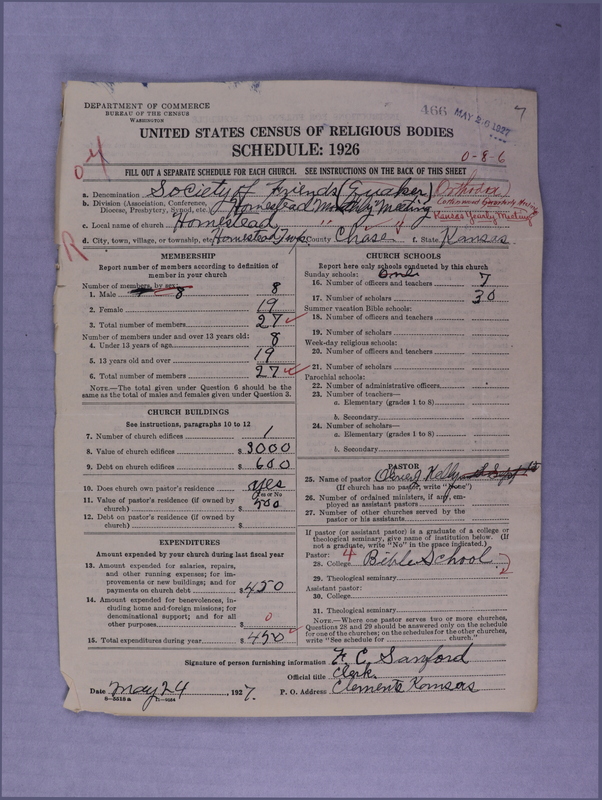 DEPARTMENT OF COMMERCE
BUREAU OF THE CENSUS
WASHINGTON
466 MAY 26 1927
7
UNITED STATES CENSUS OF RELIGIOUS BODIES
SCHEDULE: 1926
0-8-6
FILL OUT A SEPARATE SCHEDULE FOR EACH CHURCH. SEE INSTRUCTIONS ON THE BACK OF THIS SHEET
a. Denomination Society of Friends (Quaker) Orthodox
b. Division (Association, Conference, Diocese, Presbytery, Synod, etc.) Homestead Monthly Meeting Cottonwood Quarterly Meeting
Kansas Yearly Meeting
c. Local name of church Homestead " "
d. City, town, village, or township, etc. Homestead Twp. County Chase f. State Kansas
R
MEMBERSHIP
Report number of members according to definition of member in your church
Number of members, by sex:
1. Male 8 8
2. Female 19
3. Total number of members 27
Number of members under and over 13 years old:
4. Under 13 years of age 8
5. 13 years old and over 19
6. Total number of members 27
NOTE.—The total given under Question 6 should be the same as the total of males and females given under Question 3.
CHURCH BUILDINGS
See instructions, paragraphs 10 to 12
7. Number of church edifices 1
8. Value of church edifices $ 3000
9. Debt on church edifices $ 600
10. Does church own pastor's residence yes
Yes or No
11. Value of pastor's residence (if owned by church) $ 500
12. Debt on pastor's residence (if owned by church) $
EXPENDITURES
Amount expended by your church during last fiscal year
13. Amount expended for salaries, repairs, and other running expenses; for improvements or new buildings; and for payments on church debt $ 450
14. Amount expended for benevolences, including home and foreign missions; for denominational support; and for all other purposes $ 0
15. Total expenditures during year $ 450
CHURCH SCHOOLS
Report here only schools conducted by this church
Sunday schools:
16. Number of officers and teachers 7
17. Number of scholars 30
Summer vacation Bible schools:
18. Number of officers and teachers
19. Number of scholars
Week-day religious schools:
20. Number of officers and teachers
21. Number of scholars
Parochial schools:
22. Number of administrative officers
23. Number of teachers—
a. Elementary (grades 1 to 8)
b. Secondary
24. Number of scholars—
a. Elementary (grades 1 to 8)
b. Secondary
PASTOR
25. Name of pastor Kelly
(If church has no pastor, write "none")
26. Number of ordained ministers, if any, employed as assistant pastors
27. Number of other churches served by the pastor or his assistants
If pastor (or assistant pastor) is a graduate of a college or theological seminary, give name of institution below. (If not a graduate, write "No" in the space indicated.)
Pastor:
28. College 4 Bible School
29. Theological seminary
Assistant pastor:
30. College
31. Theological seminary
NOTE.—Where one pastor serves two or more churches, Questions 28 and 29 should be answered only on the schedule for one of the churches; on the schedules for the other churches, write "See schedule for church."
Signature of person furnishing information F. C. Sanford
Official title Clerk.
Date May 24, 1927. P. O. Address Clements Kansas